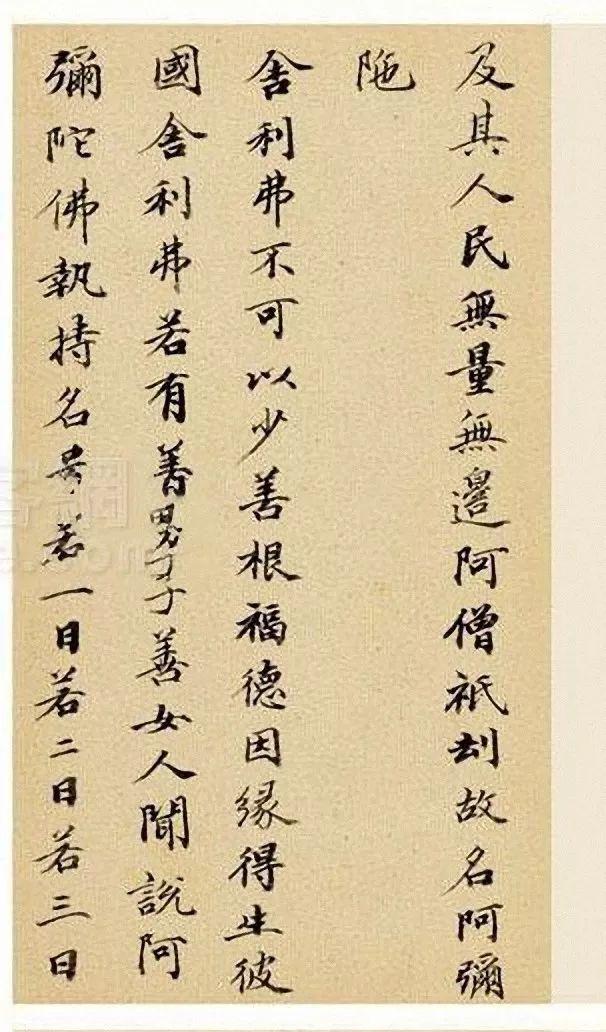 及其人民無量無邊阿僧祇劫故名阿彌
陁
舍利弗不可以少善根福德因緣得生彼
國舍利弗若有善男子善女人聞說阿
彌陀佛執持名号若一日若二日若三日